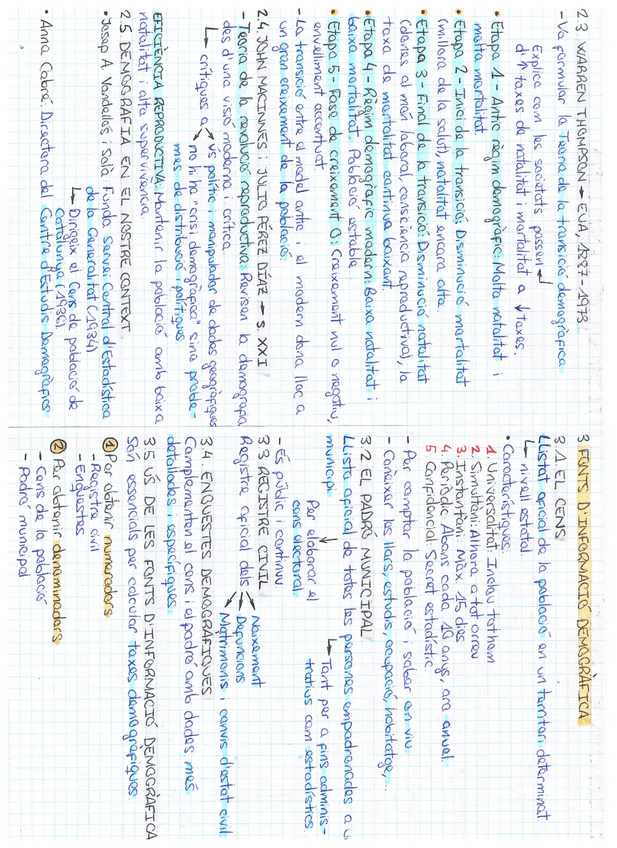 2.3. WARREN THOMPSON → EUA, 1887-1973
- Va formular la Teoria de la transició demogràfica.
Explica com les societats passen
d'↑ taxes de natalitat i mortalitat a ↓ taxes.
• Etapa 1 - Antic règim demogràfic: Molta natalitat i
molta mortalitat
• Etapa 2 - Inici de la transició: Disminució mortalitat
(millora de la salut), natalitat encara alta.
• Etapa 3 - Final de la transició: Disminució natalitat
(dones al món laboral, consciència reproductiva), la
taxa de mortalitat continua baixant.
• Etapa 4 - Règim demogràfic modern: Baixa natalitat i
baixa mortalitat. Població estable
• Etapa 5 - Fase de creixement 0: Creixement nul o negatiu,
envelliment accentuat.
- La transició entre el model antic i el modern dona lloc a
un gran creixement de la població.
2.4. JOHN MACINNES i JULIO PÉREZ DÍAZ → s. XXI
- Teoria de la revolució reproductiva: Revisen la demografia
des d'una visió moderna i crítica.
↳ crítiques a
ús polític i manipulador de dades geogràfiques
no hi ha "crisi demogràfica" sinó proble-
mes de distribució i polítiques
EFICIÈNCIA REPRODUCTIVA: Mantenir la població amb baixa
natalitat i alta supervivència.
2.5. DEMOGRAFIA EN EL NOSTRE CONTEXT
• Josep A. Vandellós i Solà: Funda Servei Central d'Estadística
de la Generalitat (1934)
↳ Dirigeix el Cens de població de
Catalunya (1936)
• Anna Cabré: Directora del Centre d'Estudis Demogràfics
3. FONTS D'INFORMACIÓ DEMOGRÀFICA
3.1. EL CENS
Llistat oficial de la població en un territori determinat
↳ nivell estatal
• Característiques
1. Universalitat: Inclou tothom
2. Simultani: Alhora a tot arreu
3. Instantani: Màx. 15 dies
4. Periòdic: Abans cada 10 anys, ara anual
5. Confidencial: Secret estadístic
- Per comptar la població i saber on viu
- Conèixer les llars, estudis, ocupació, habitatge,...
3.2 EL PADRÓ MUNICIPAL
Llista oficial de totes les persones empadronades a u
municipi
↳ Tant per a fins adminis-
tratius com estadístics
Per elaborar el
cens electoral
- És públic i continu
3.3 REGISTRE CIVIL
Registre oficial dels
Naixement
Defuncions
Matrimonis i canvis d'estat civil
3.4. ENQUESTES DEMOGRÀFIQUES
Complementen el cens i el padró amb dades més
detallades i específiques
3.5 ÚS DE LES FONTS D'INFORMACIÓ DEMOGRÀFICA
Són essencials per calcular taxes demogràfiques.
① Per obtenir numeradors
- Registre civil
- Enquestes
② Per obtenir denominadors
- Cens de la població
- Padró municipal